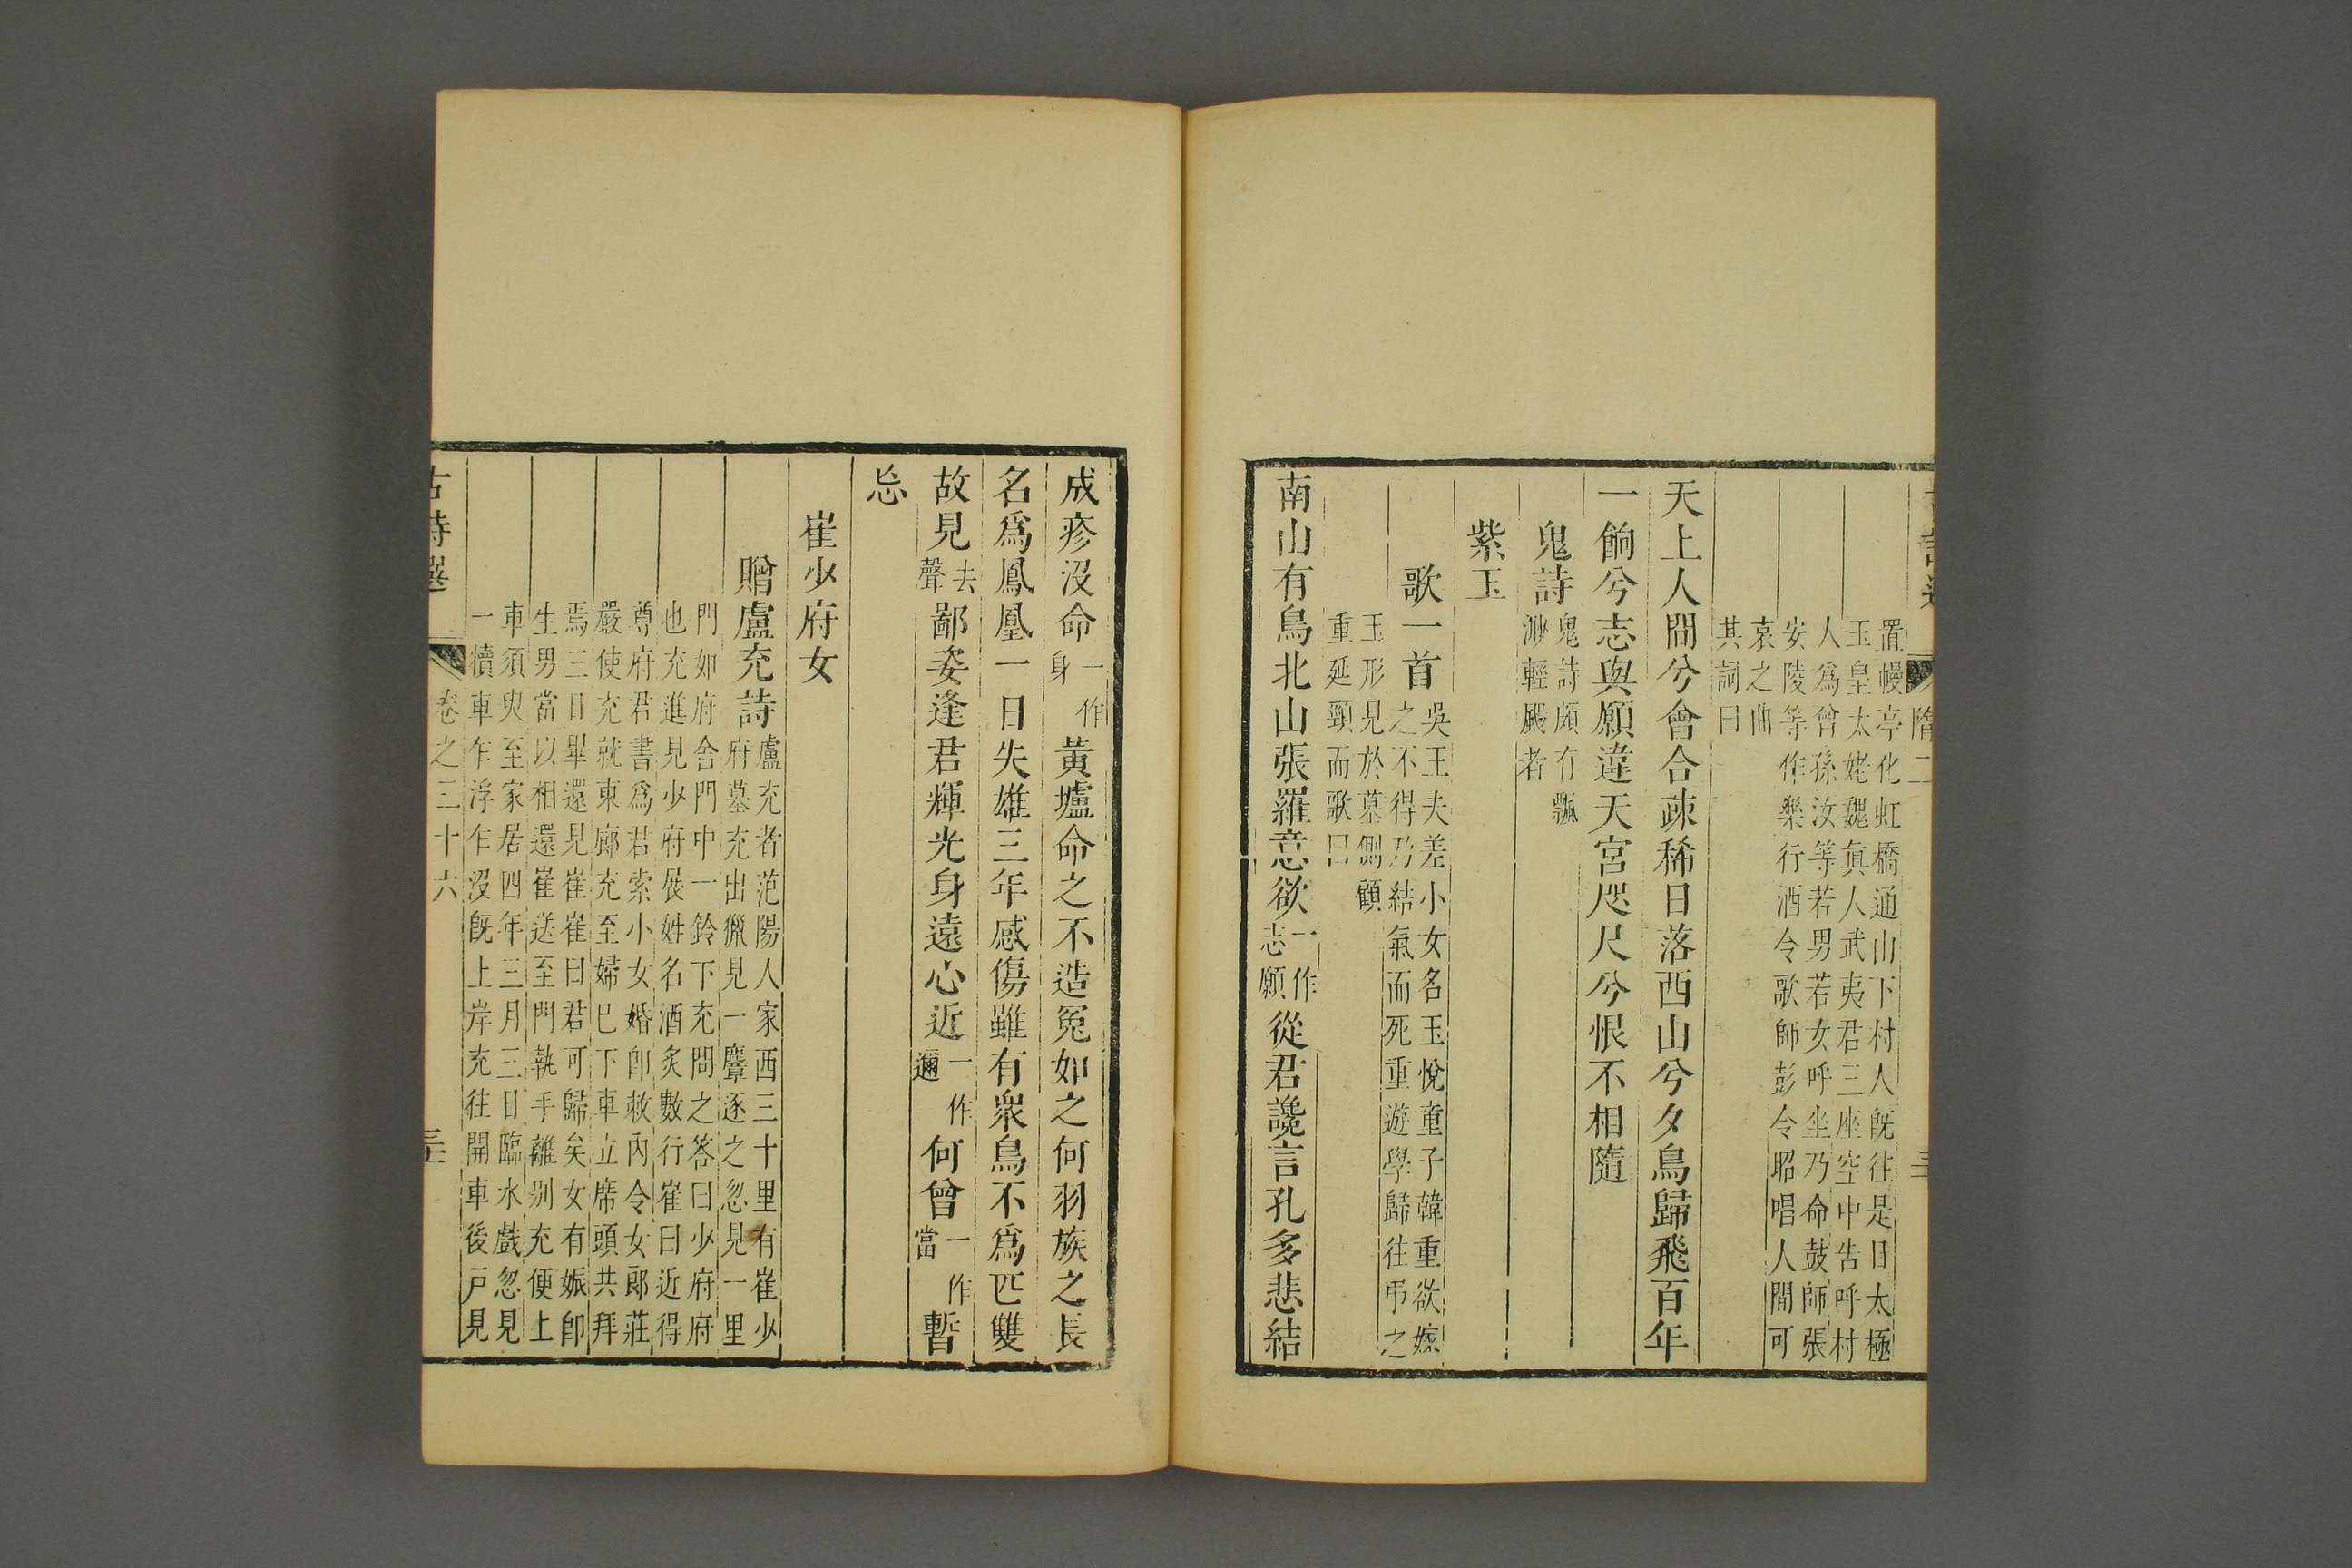 置幔亭化虹橋通山下村人旣往是日太極
玉皇太姥魏眞人武夷君三座空中告呼村
人爲曾孫汝等若男若女呼坐乃命鼓師張
安陵等作樂行酒令歌師彭令昭唱人間可
哀之曲
其詞曰
天上人間兮會合疎稀日落西山兮夕鳥歸飛百年
一餉兮志與願違天宮咫尺兮恨不相隨
鬼詩
鬼詩頗有飄
渺輕麗者
紫玉
歌一首
吳王夫差小女名玉悅童子韓重欲嫁
之不得乃結氣而死重遊學歸往弔之
玉形見於墓側顧
重延頸而歌曰
南山有鳥北山張羅意欲一作志願從君讒言孔多悲結
成疹沒命一作身黃壚命之不造冤如之何羽族之長
名爲鳳凰一日失雄三年感傷雖有衆鳥不爲匹雙
故見去聲鄙姿逢君輝光身遠心近一作邇何曾一作當暫
忘
崔少府女
贈盧充詩
盧充者范陽人家西三十里有崔少
府墓充出獵見一麞逐之忽見一里
門如府舍門中一鈴下充問之答曰少府府
也充進見少府展姓名酒炙數行崔曰近得
尊府君書爲君索小女婚卽敕內令女郞莊
嚴使充就東廊充至婦巳下車立席頭共拜
焉三日畢還見崔崔曰君可歸矣女有娠卽
生男當以相還崔送至門執手離別充便上
車須臾至家居四年三月三日臨水戲忽見
一犢車乍浮乍沒旣上岸充往開車後戸見
古詩選
卷之三十六